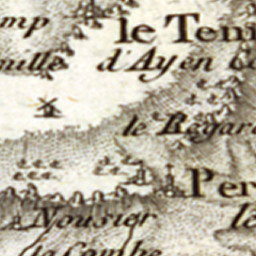 mp
le Tem
ouille d'Ayen
le Regar
Per
Nousier
la Combe